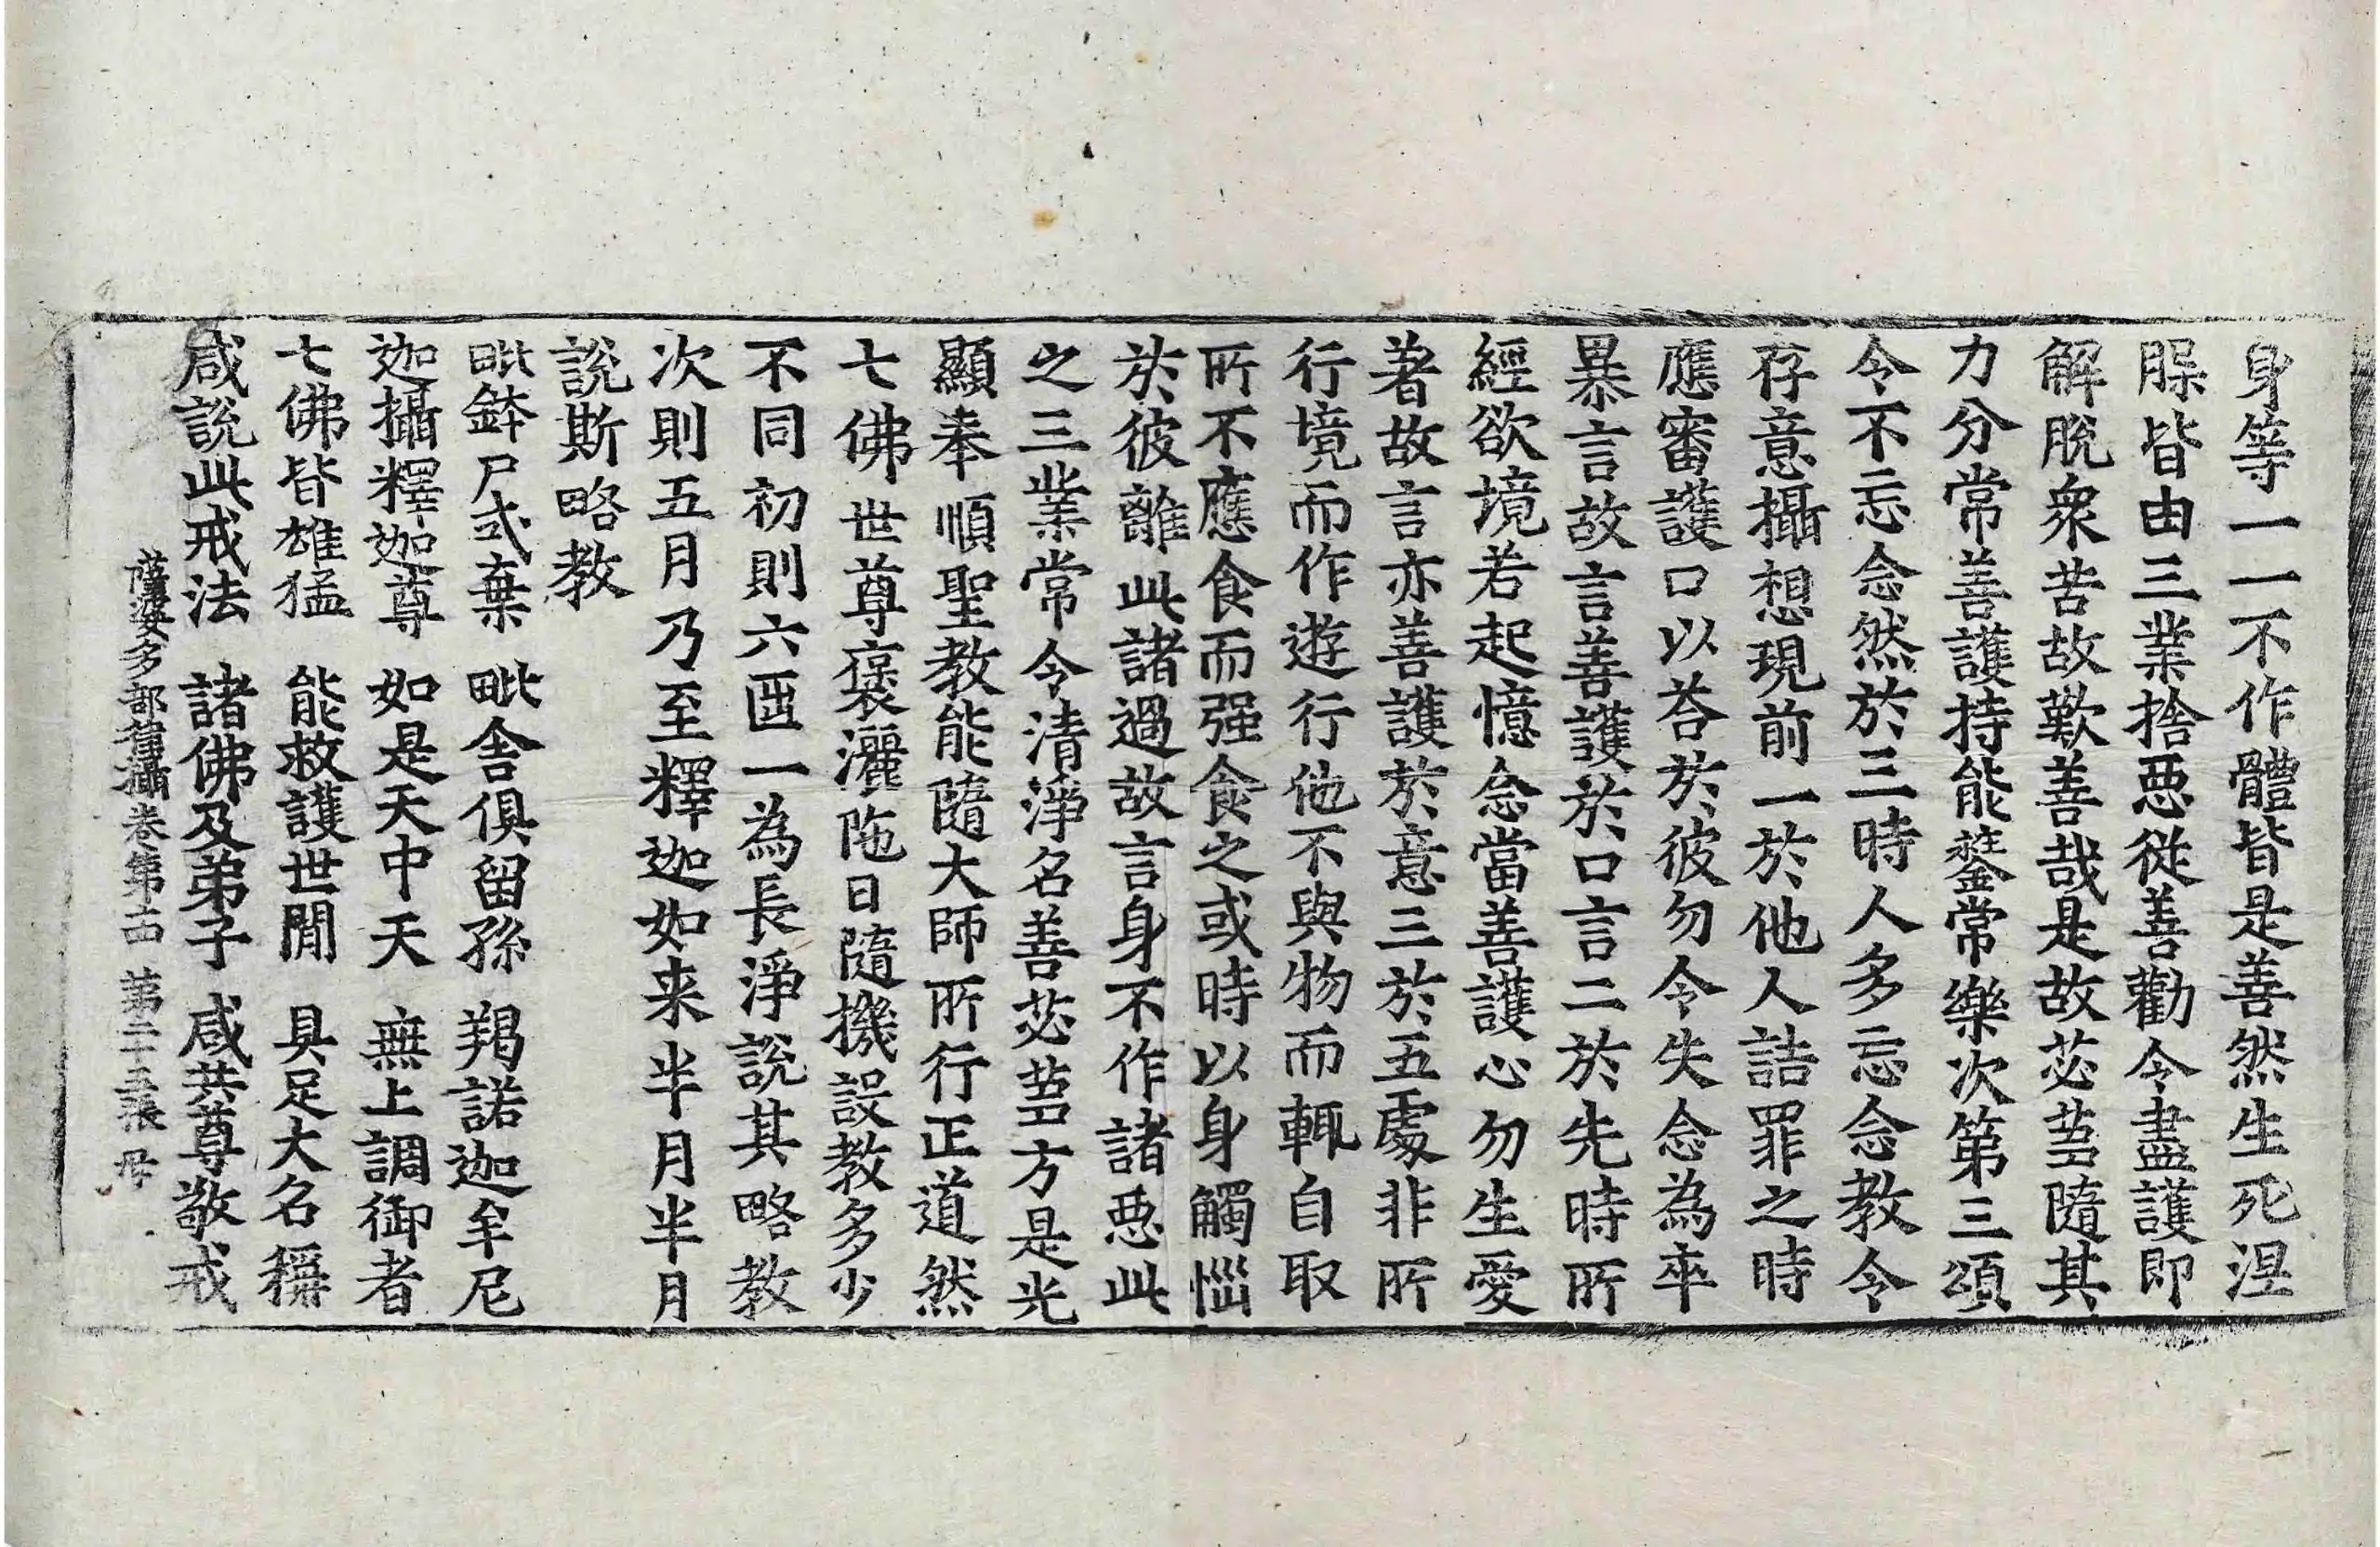 身等一一不作體皆是善然生死涅
腂皆由三業捨惡從善勸令盡護即
解脫衆苦故歎善哉是故苾芻隨其
力分常善護持能鍌常樂次第三頌
令不忘念然於三時人多忘念教令
存意攝想現前一於他人詰罪之時
應審護口以荅於彼勿令失念為卒
暴言故言善護於口言二於先時所
經欲境若起憶念當善護心勿生愛
著故言亦善護於意三於五處非所
行境而作遊行他不與物而輒自取
所不應食而强食之或時以身觸惱
於彼離此諸過故言身不作諸惡此
之三業常令清淨名善苾芻方是光
顯奉順聖教能隨大師所行正道然
七佛世尊褒灑陁日隨機設教多少
不同初則六迊一為長淨說其略教
次則五月乃至釋迦如来半月半月
說斯略教
毗鉢尸式棄 毗舍俱留孫 羯諾迦牟尼
迦攝釋迦尊 如是天中天 無上調御者
七佛皆雄猛 能救護世閒 具足大名稱
咸說此戒法 諸佛及弟子 咸共尊敬戒
薩婆多部律攝卷第十四 第二十三張 母